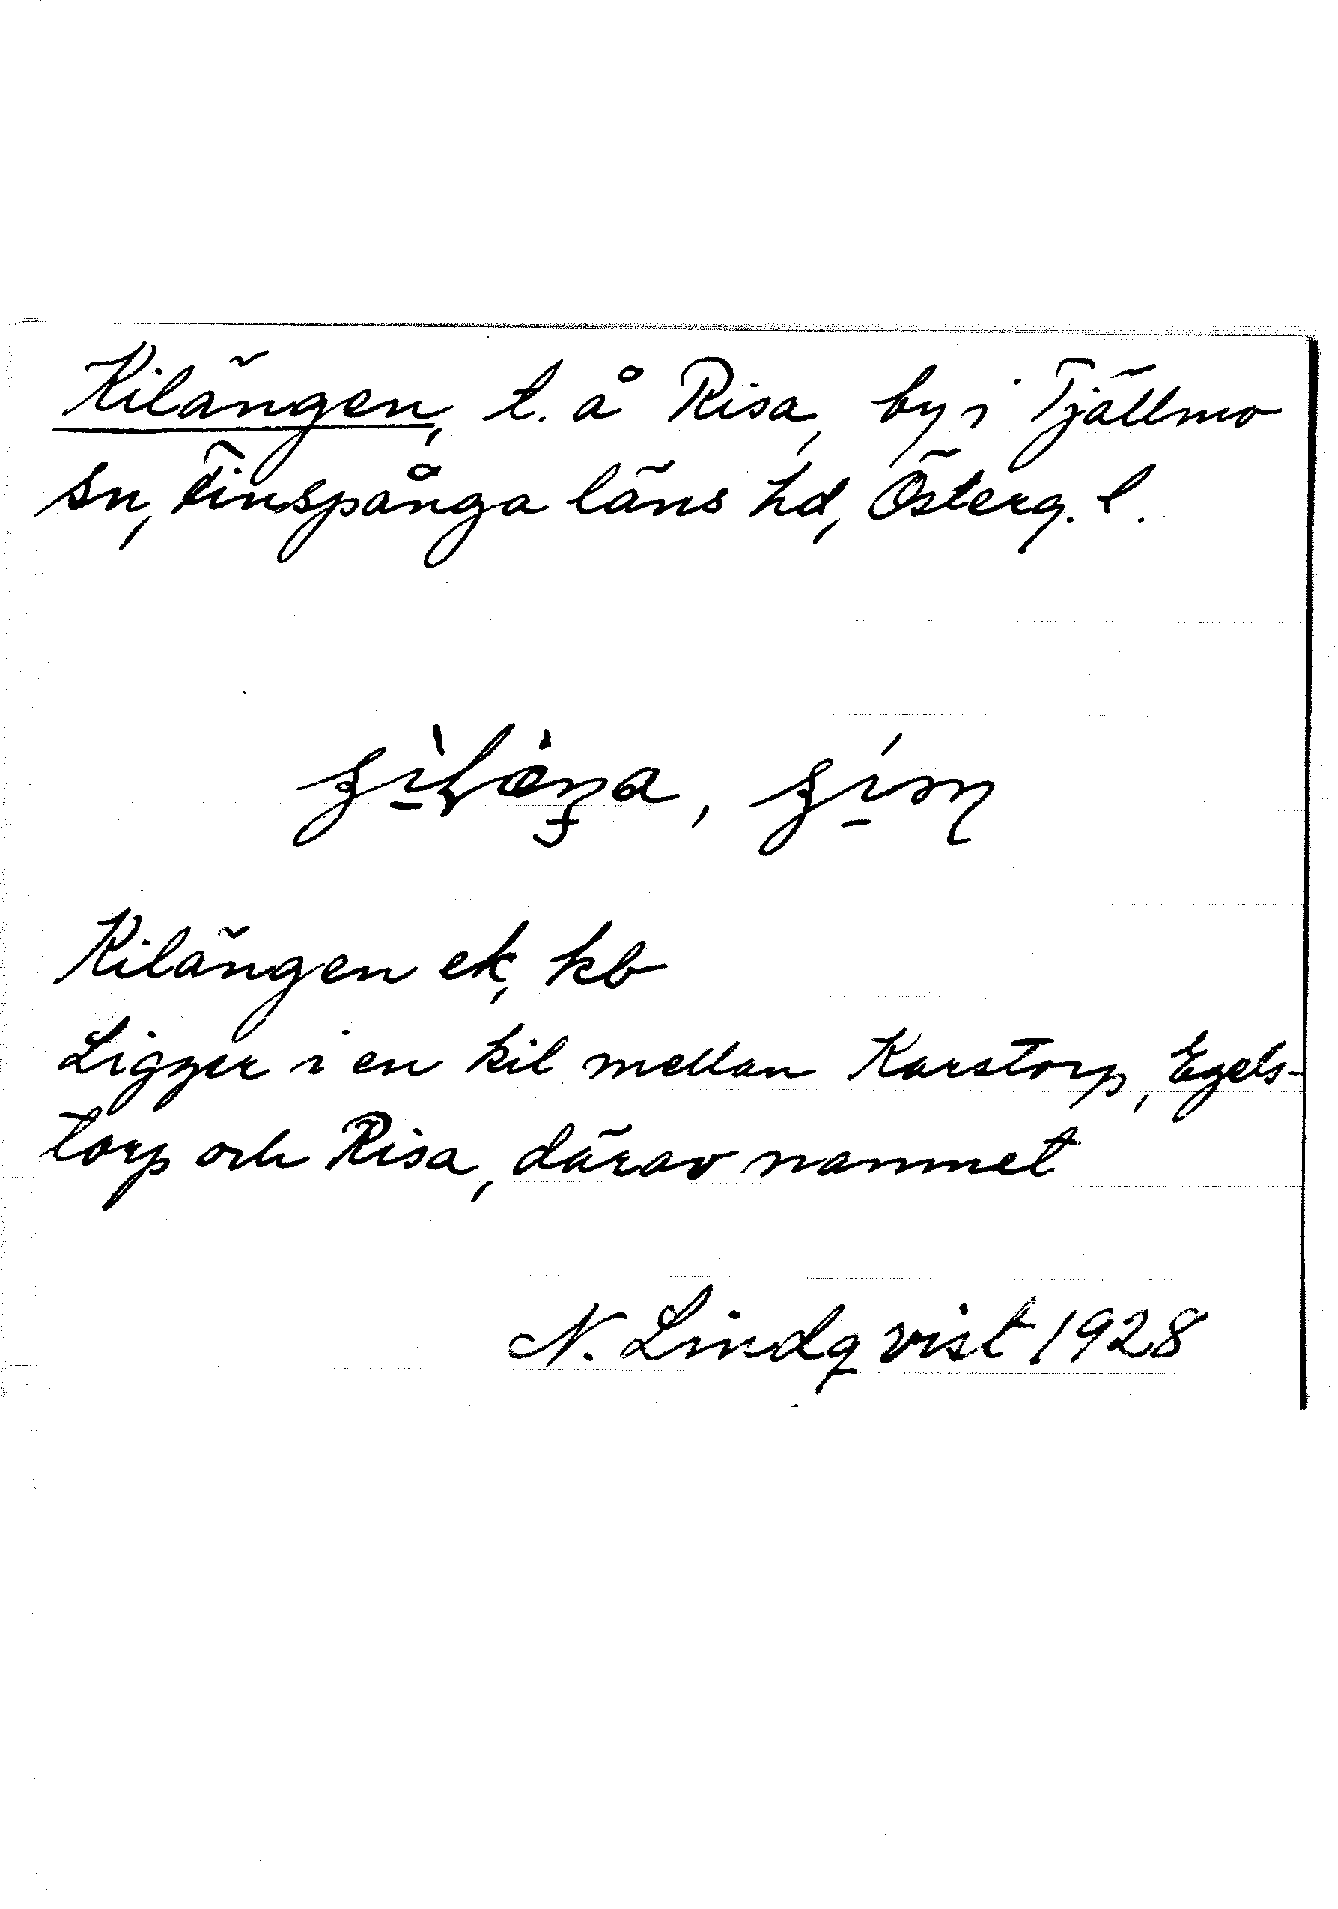 Kilängen, t. å Risa, by i Tjällmo
sn, Finspånga läns hd, Österg. l.
Kilängen ek, kb
Ligger i en kil mellan Karstorp, Egels-
torp och Risa, därav namnet
N. Lindqvist 1928